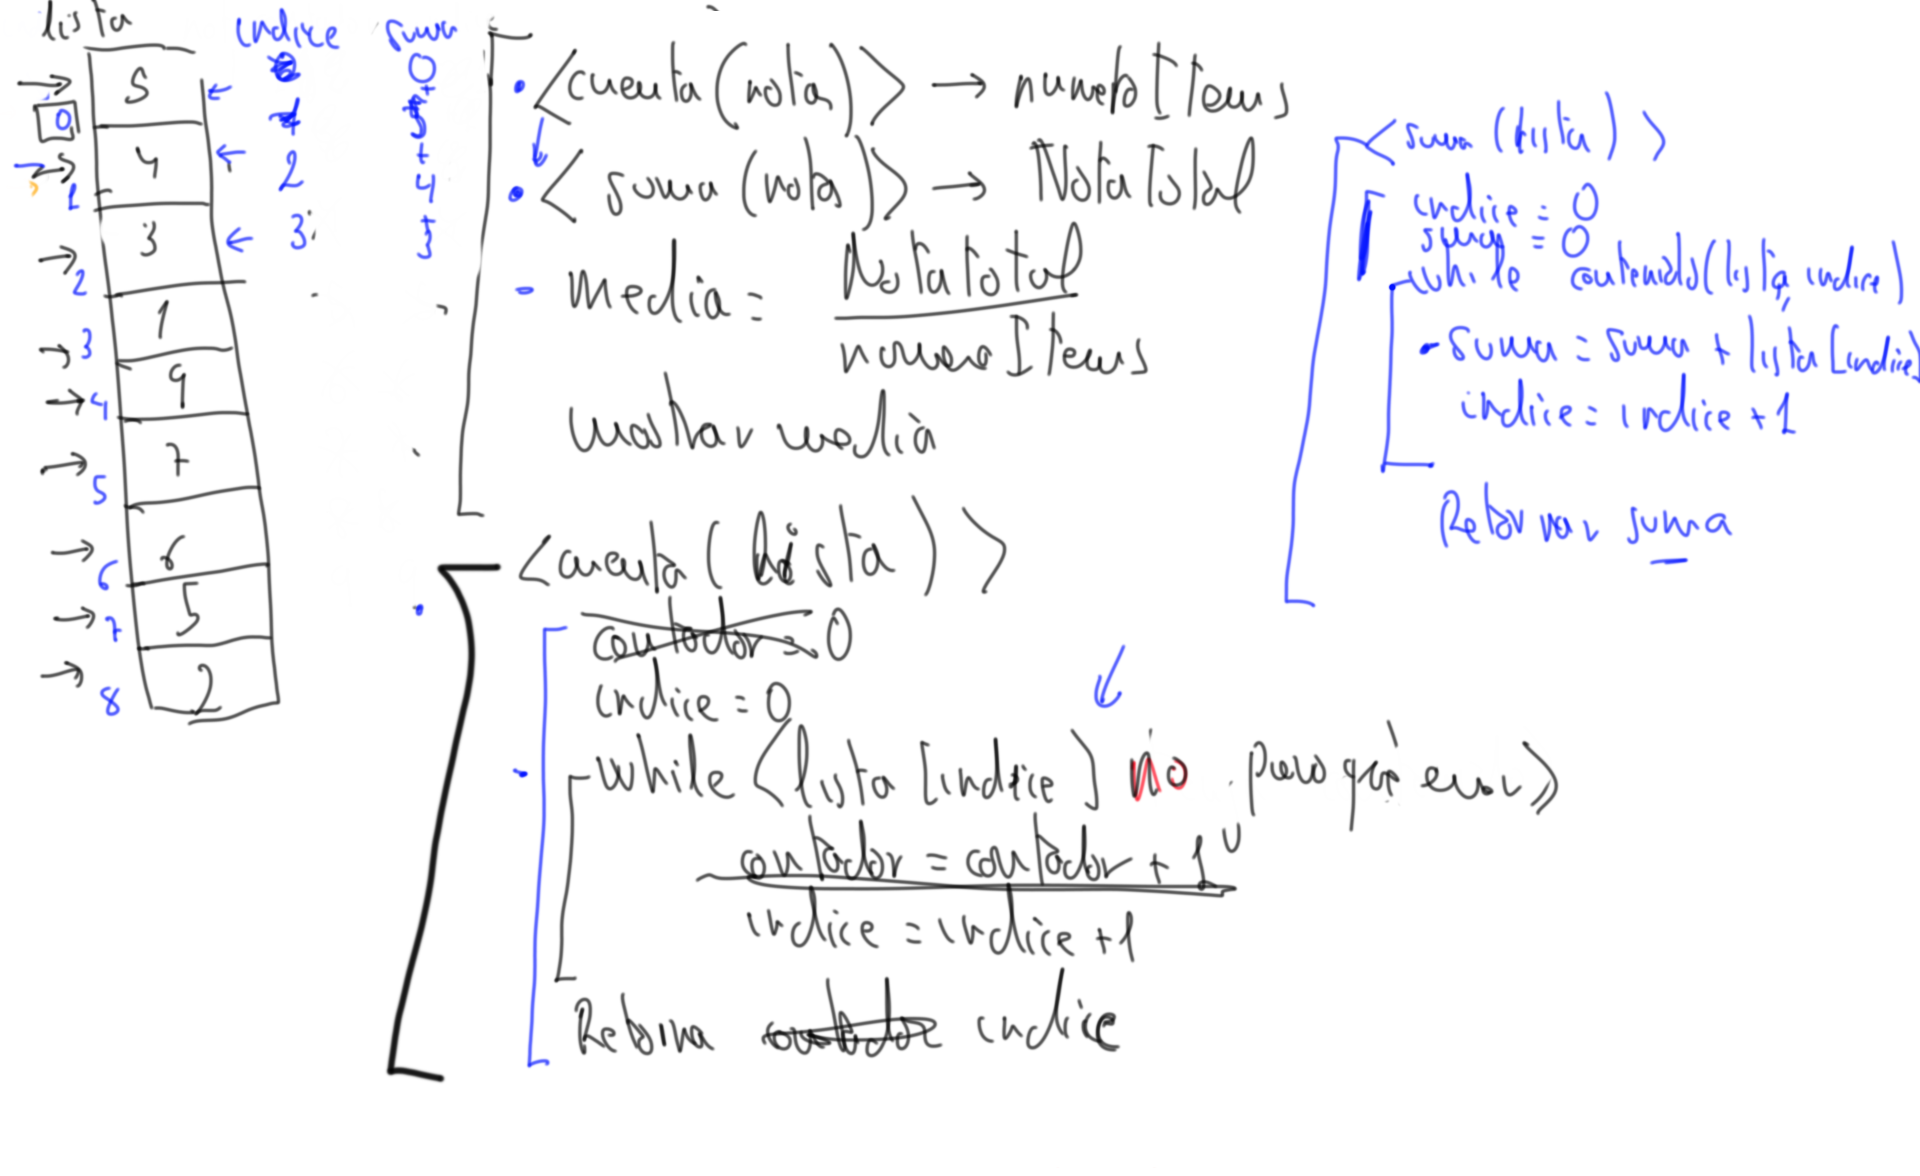 lista
5
0
4
1
3
2
1
3
9
4
7
5
6
6
5
7
2
8
indice
2
3
suma
0
+
5
+
4
+
3
<cuenta(notas)> → numeroItems
<suma(notas)> → NotaTotal
media = NotaTotal
numeroItems
mostrar media
<cuenta(lista)>
contador = 0
indice = 0
while <lista[indice] no porque error>
contador = contador + 1
indice = indice + 1
Retorna contador indice
<suma(lista)>
indice = 0
suma = 0
while contenido(lista, indice)
suma = suma + lista[indice]
indice = indice + 1
Retornar suma